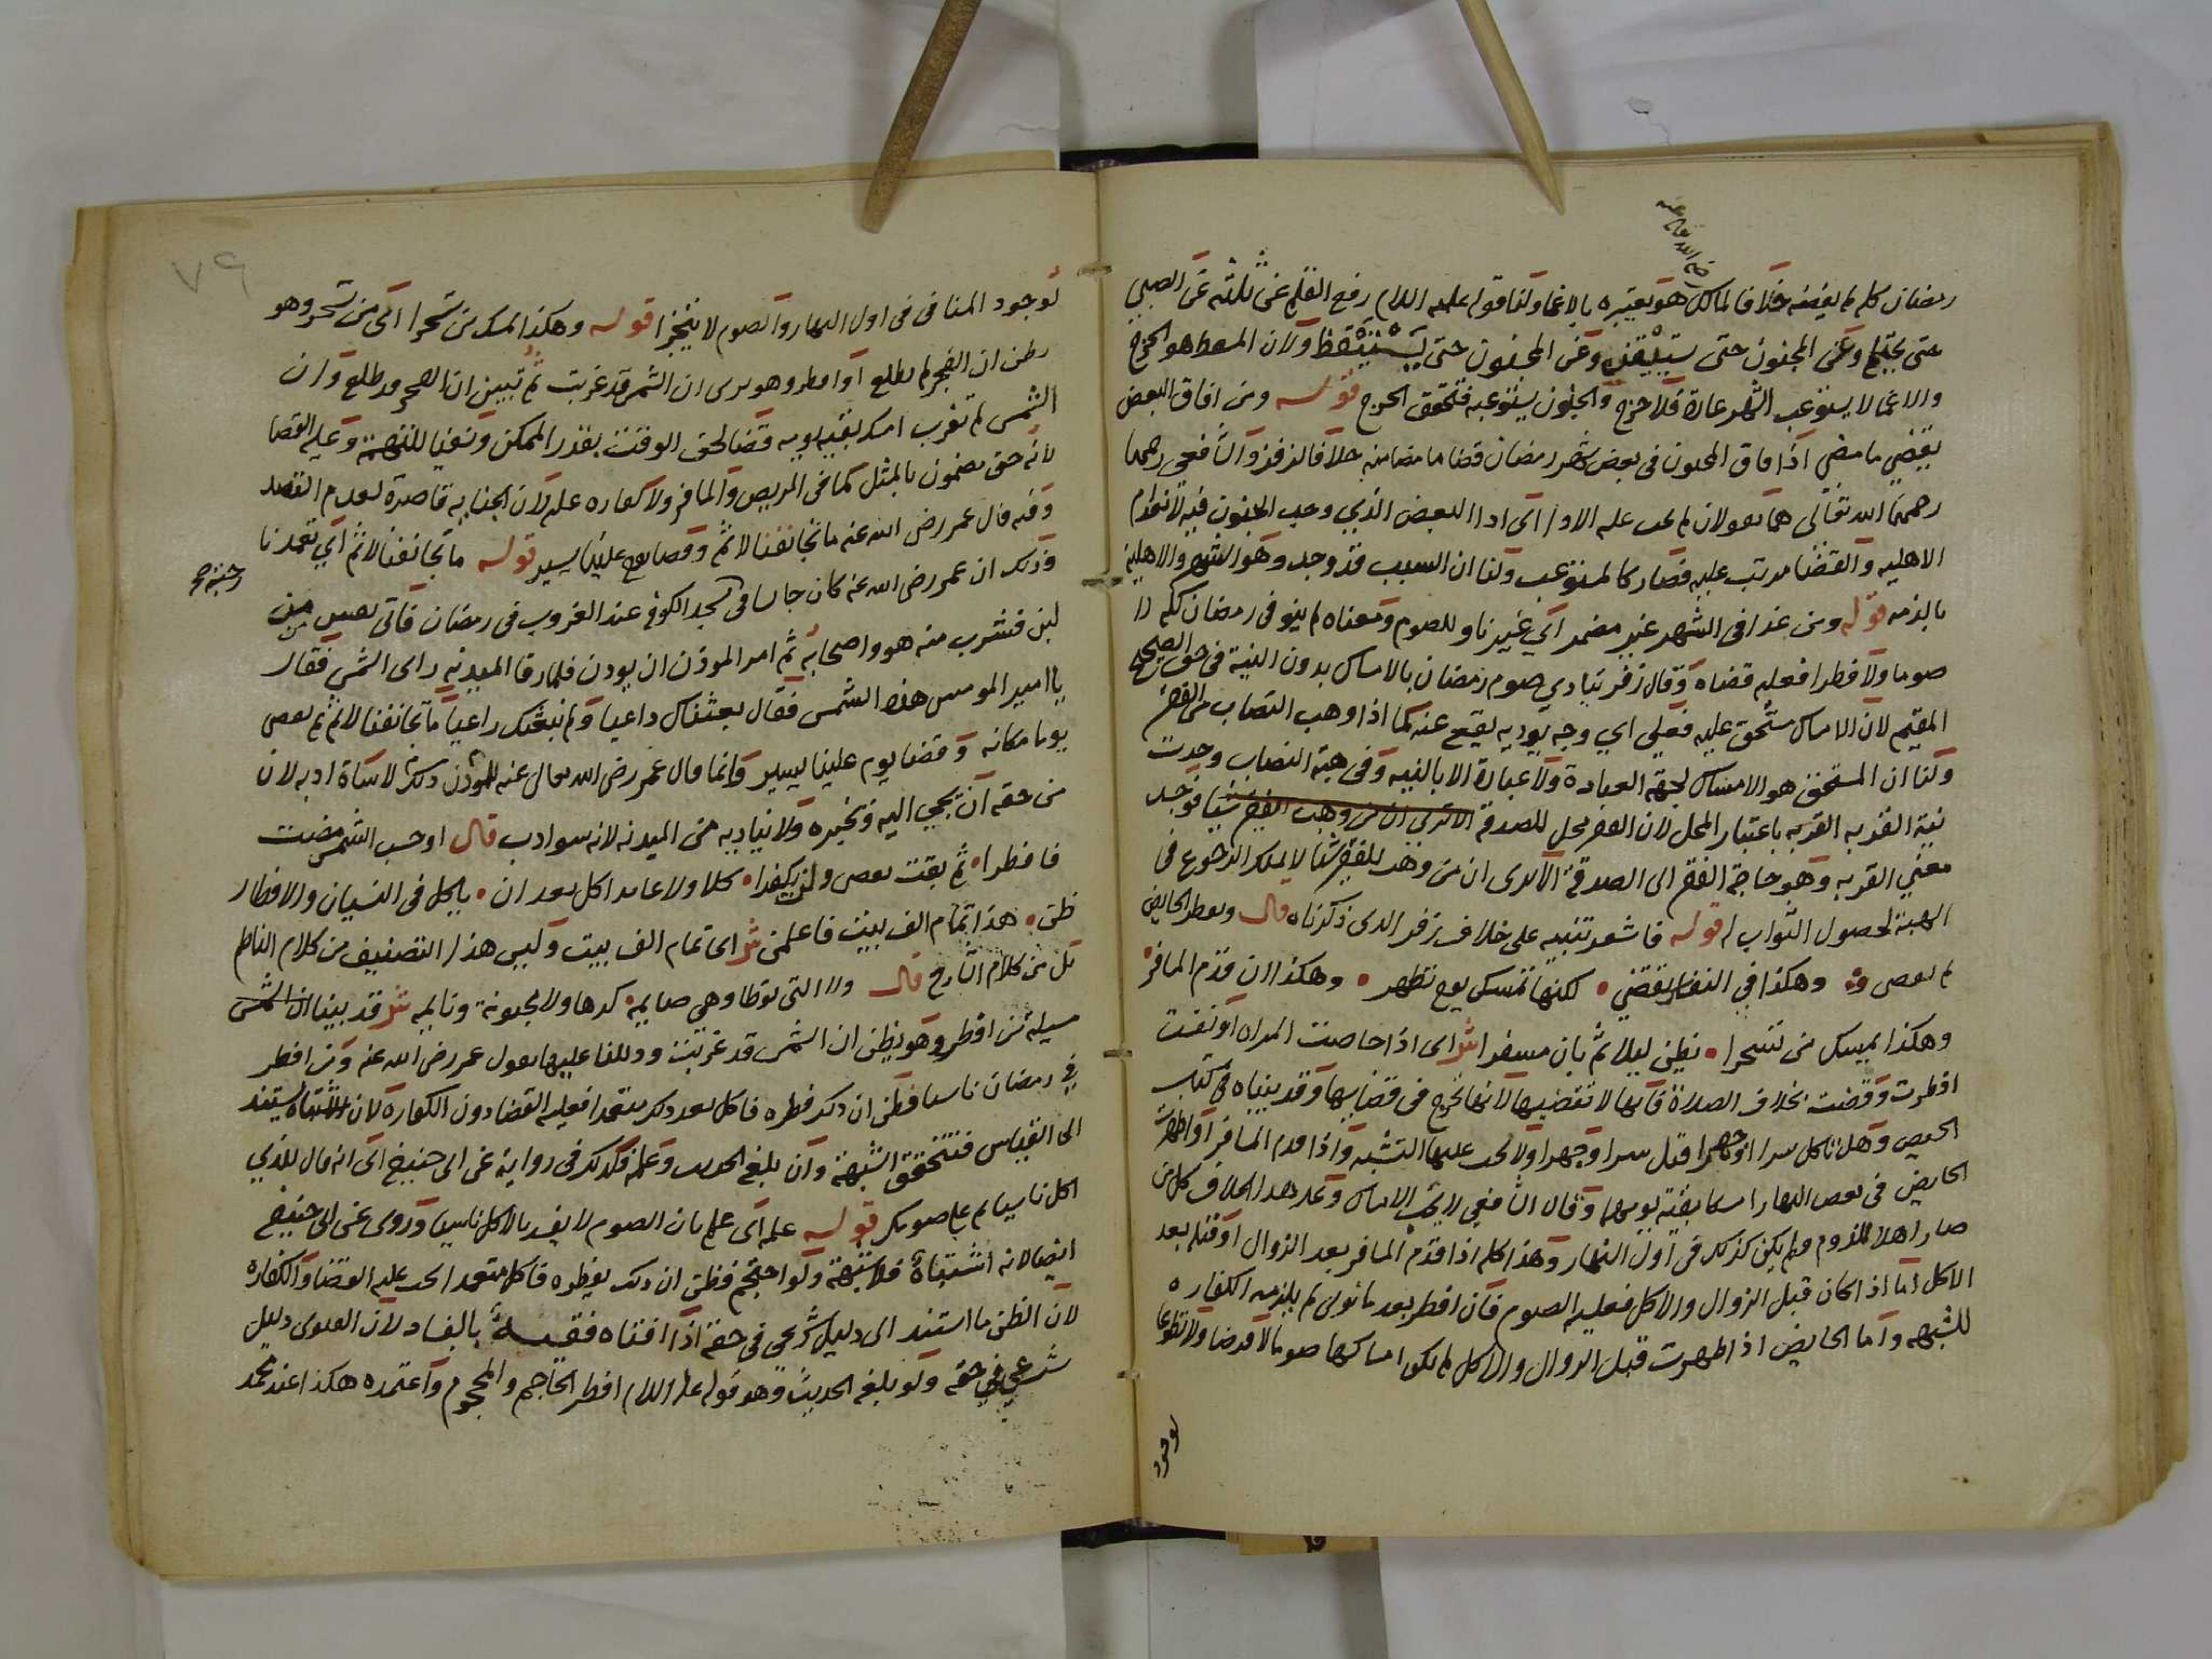 رمضان كله لم يقضه خلافا لمالك هو يعتبره بالاغما ولنا قوله عليه السلام رفع القلم عن ثلثه عن الصبي
حتى يحتلم وعن المجنون حتى وعن المجنون حتى يستيقظ ولان المسقط هو الحرج
والاغما لا يستوعب الشهر عادة فلا حرج والجنون يستوعبه فتحقق الحرج قوله ومن افاق البعض
يقضي ما مضى اذا افاق المجنون في بعض شهر رمضان قضا ما مضا منه خلافا لزفر والشافعي رحمهما
رحمهما الله تعالى هما يقولان لم يجب عليه الادا اى ادا البعض الذي وجب الجنون فيه لانعدام
الاهليه والقضا مرتب عليه فصار كالمستوعب ولنا ان السبب قد وجد وهو الشهر والاهلية
بالذمه قوله ومن غدا في الشهر غير مضمر اي غير ناو للصوم ومعناه لم ينو في رمضان كله لا
صوما ولا فطرا فعليه قضاه وقال زفر يتادي صوم رمضان بالامساك بدون النية في حق الصحيح
المقيم لان الامساك مستحق عليه فعلى اي وجه يوديه يقع عنه كما اذا وهب النصاب من الفقير
ولنا ان المستحق هو الامساك لجهة العبادة ولا عبادة الا بالنيه وفي هبة النصاب وجدت
نية القربه القربه باعتبار المحل لان الفقير محل للصدقة الا ترى ان من وهب الفقير شيا فوجد
معني القربه وهو حاجة الفقير الى الصدقة الا ترى ان من وهب للفقير شيا لا يملك الرجوع في
الهبة لحصول الثواب له قوله فاشعر تنبيه على خلاف زفر الذى ذكرناه قال ويفطر الحايض
لم يعص وهكذا في النفاس يقضي • لكنها تمسك يوم تطهر • وهكذا ان قدم المسافر
وهكذا يمسك من تسحرا • يظن ليلا ثم بان مسفرا ش اى اذا حاضت المراه او نفست
افطرت وقضت بخلاف الصلاة فانها لا تقضيها لانها تحرج في قضايها وقد بيناه في كتاب
الحيض وهل تاكل سرا او جهرا قيل سرا وقيل جهرا ولا يجب عليها التشبه واذا قدم المسافر او طهرت
الحايض في بعض النهار امسكا بقية يومهما وقال الشافعي لا يجب الامساك وعلى هذا الخلاف كل من
صار اهلا للزوم ولم يكن كذلك في اول النهار وهذا كله اذا قدم المسافر بعد الزوال او قبله بعد
الاكل اما اذا كان قبل الزوال والاكل فعليه الصوم فان افطر بعد ما نوى لم يلزمه الكفاره
للشبهه واما الحايض اذا طهرت قبل الزوال والاكل لم يكن امساكها صوما لا فرضا ولا تطوعا
لوجود
٧٩
لوجود المنافى في اول النهار والصوم لا يتجزا قوله وهكذا يمسك من تسحرا اى من تسحر وهو
يظن ان الفجر لم يطلع او افطر وهو يرى ان الشمس قد غربت ثم تبين ان الفجر قد طلع وان
الشمس لم تغرب امسك بقية يومه قضا لحق الوقت بقدر الممكن ونفيا للتهمة وعليه القضا
لانه حق مضمون بالمثل كما في المريض والمسافر ولا كفاره عليه لان الجنايه قاصرة لعدم القصد
وفيه قال عمر رضى الله عنه ما تجانفنا لاثم وقضا يوم علينا يسير قوله ما تجانفنا لاثم اي تعمدنا
وذلك ان عمر رضى الله عنه كان جالسا في مسجد الكوفه عند الغروب في رمضان فاتى بعس من
لبن فشرب منه هو واصحابه ثم امر الموذن ان يوذن فلما رقا الميدنه راى الشمس فقال
يا امير المومنين هذه الشمس فقال بعثناك داعيا ولم نبعثك راعيا ما تجانفنا لاثم ثم نقضى
يوما مكانه وقضا يوم علينا يسير وانما قال عمر رضى الله تعالى عنه للموذن ذلك لاساة ادبه لان
من حقه ان يجي اليه فيخبره ولا يناديه من الميدنه لانه سو ادب قال او حسب الشمس مضت
فافطرا • ثم بقت يقض ولن يكفرا • كلا ولا عامد اكل بعد ان • ياكل في النسيان والافطار
ظن • هذا تمام الف بيت فاعلمن ش اى تمام الف بيت وليس هذا التصنيف من كلام الناظم
بل من كلام الشارح قال ولا التى توطا وهي صايمه كرها ولا مجنونة ونايمه ش قد بينا ان الشمس
مسيلة من افطر وهو يظن ان الشمس قد غربت ودللنا عليهما بقول عمر رضى الله عنه ومن افطر
في رمضان ناسيا فظن ان ذلك فطره فاكل بعد ذلك متعمدا فعليه القضا دون الكفارة لان الاشتباه استند
الى القياس فتتحقق الشبهة وان بلغه الحديث وعلمه فكذلك في رواية عن ابى حنيفه اى انه قال للذي
اكل ناسيا تم على صومك قوله علمه اى علم بان الصوم لا يفسد بالاكل ناسيا وروى عن ابى حنيفه
ايضا لانه اشتباه فلا شبهة ولو احتجم فظن ان ذلك يفطره فاكل متعمدا يجب عليه القضا والكفاره
لان الظن ما استند الى دليل شرعي في حقه اذا افتاه فقيه بالفساد لان الفتوى دليل
شرعي في حقه ولو بلغه الحديث وهو قوله عليه السلام افطر الحاجم والمحجوم واعتمده هكذا عند محمد